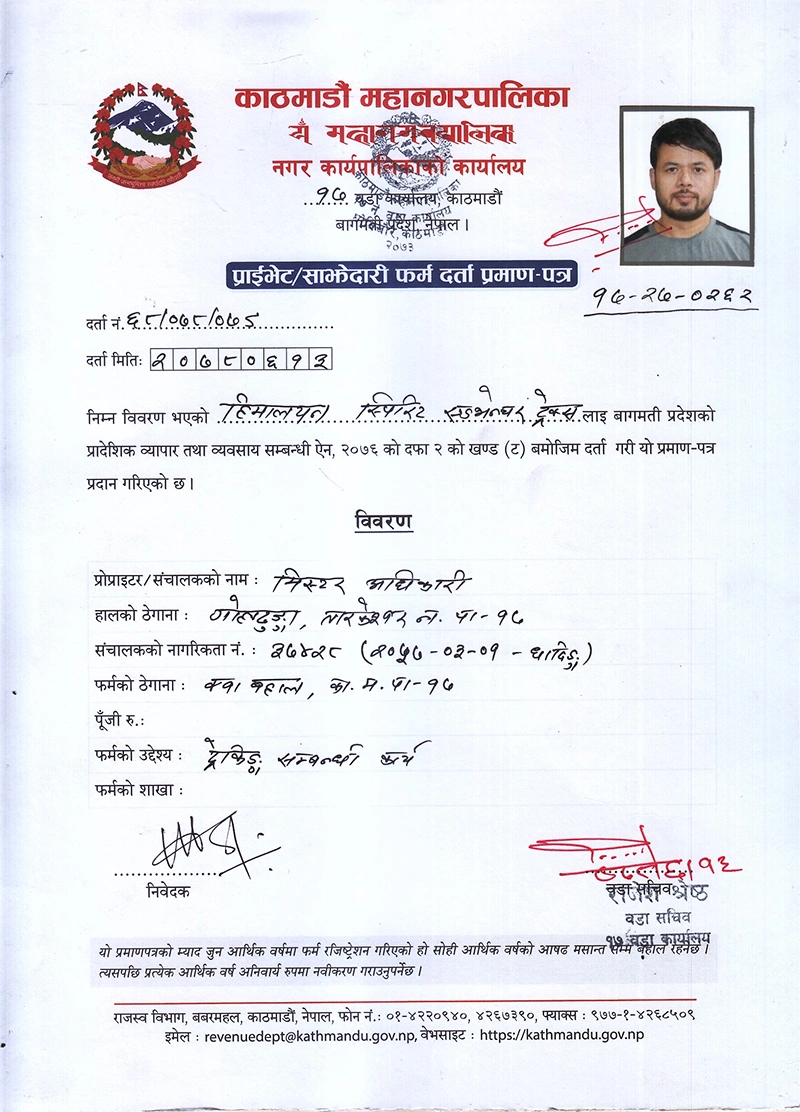 काठमाडौं महानगरपालिका
नगर कार्यपालिकाको कार्यालय
१७ वडा कार्यालय, काठमाडौं
बागमती प्रदेश, नेपाल ।
२०७३
प्राईभेट/साझेदारी फर्म दर्ता प्रमाण-पत्र
१७-२७-०२६२
दर्ता नं. ६८/०७८/०७९
दर्ता मितिः २०७८०६१३
निम्न विवरण भएको हिमालयन स्पिरिट एडभेन्चर ट्रेक्स लाइ बागमती प्रदेशको
प्रादेशिक व्यापार तथा व्यवसाय सम्बन्धी ऐन, २०७६ को दफा २ को खण्ड (ट) बमोजिम दर्ता गरी यो प्रमाण-पत्र
प्रदान गरिएको छ ।
विवरण
प्रोप्राइटर/संचालकको नाम : मिस्टर अधिकारी
हालको ठेगाना : गोलढुङ्गा, तारकेश्वर न. पा-१६
संचालकको नागरिकता नं. : ३७४२८ (२०५७-०२-०१ - धादिङ्ग)
फर्मको ठेगाना : क्वा बहाल, का. म. पा-१७
पूँजी रु.:
फर्मको उद्देश्य : ट्रेकिङ्ग सम्बन्धी कार्य
फर्मको शाखा :
निवेदक
वडा सचिव
राजेश श्रेष्ठ
वडा सचिव
१७ वडा कार्यालय
यो प्रमाणपत्रको म्याद जुन आर्थिक वर्षमा फर्म रजिष्ट्रेशन गरिएको हो सोही आर्थिक वर्षको आषढ मसान्त सम्म बहाल रहनेछ ।
त्यसपछि प्रत्येक आर्थिक वर्ष अनिवार्य रुपमा नवीकरण गराउनुपर्नेछ ।
राजस्व विभाग, बबरमहल, काठमाडौं, नेपाल, फोन नं.: ०१-४२२०९४०, ४२६७३९०, फ्याक्स : ९७७-१-४२६८५०९
इमेल : revenuedept@kathmandu.gov.np, वेभसाइट : https://kathmandu.gov.np